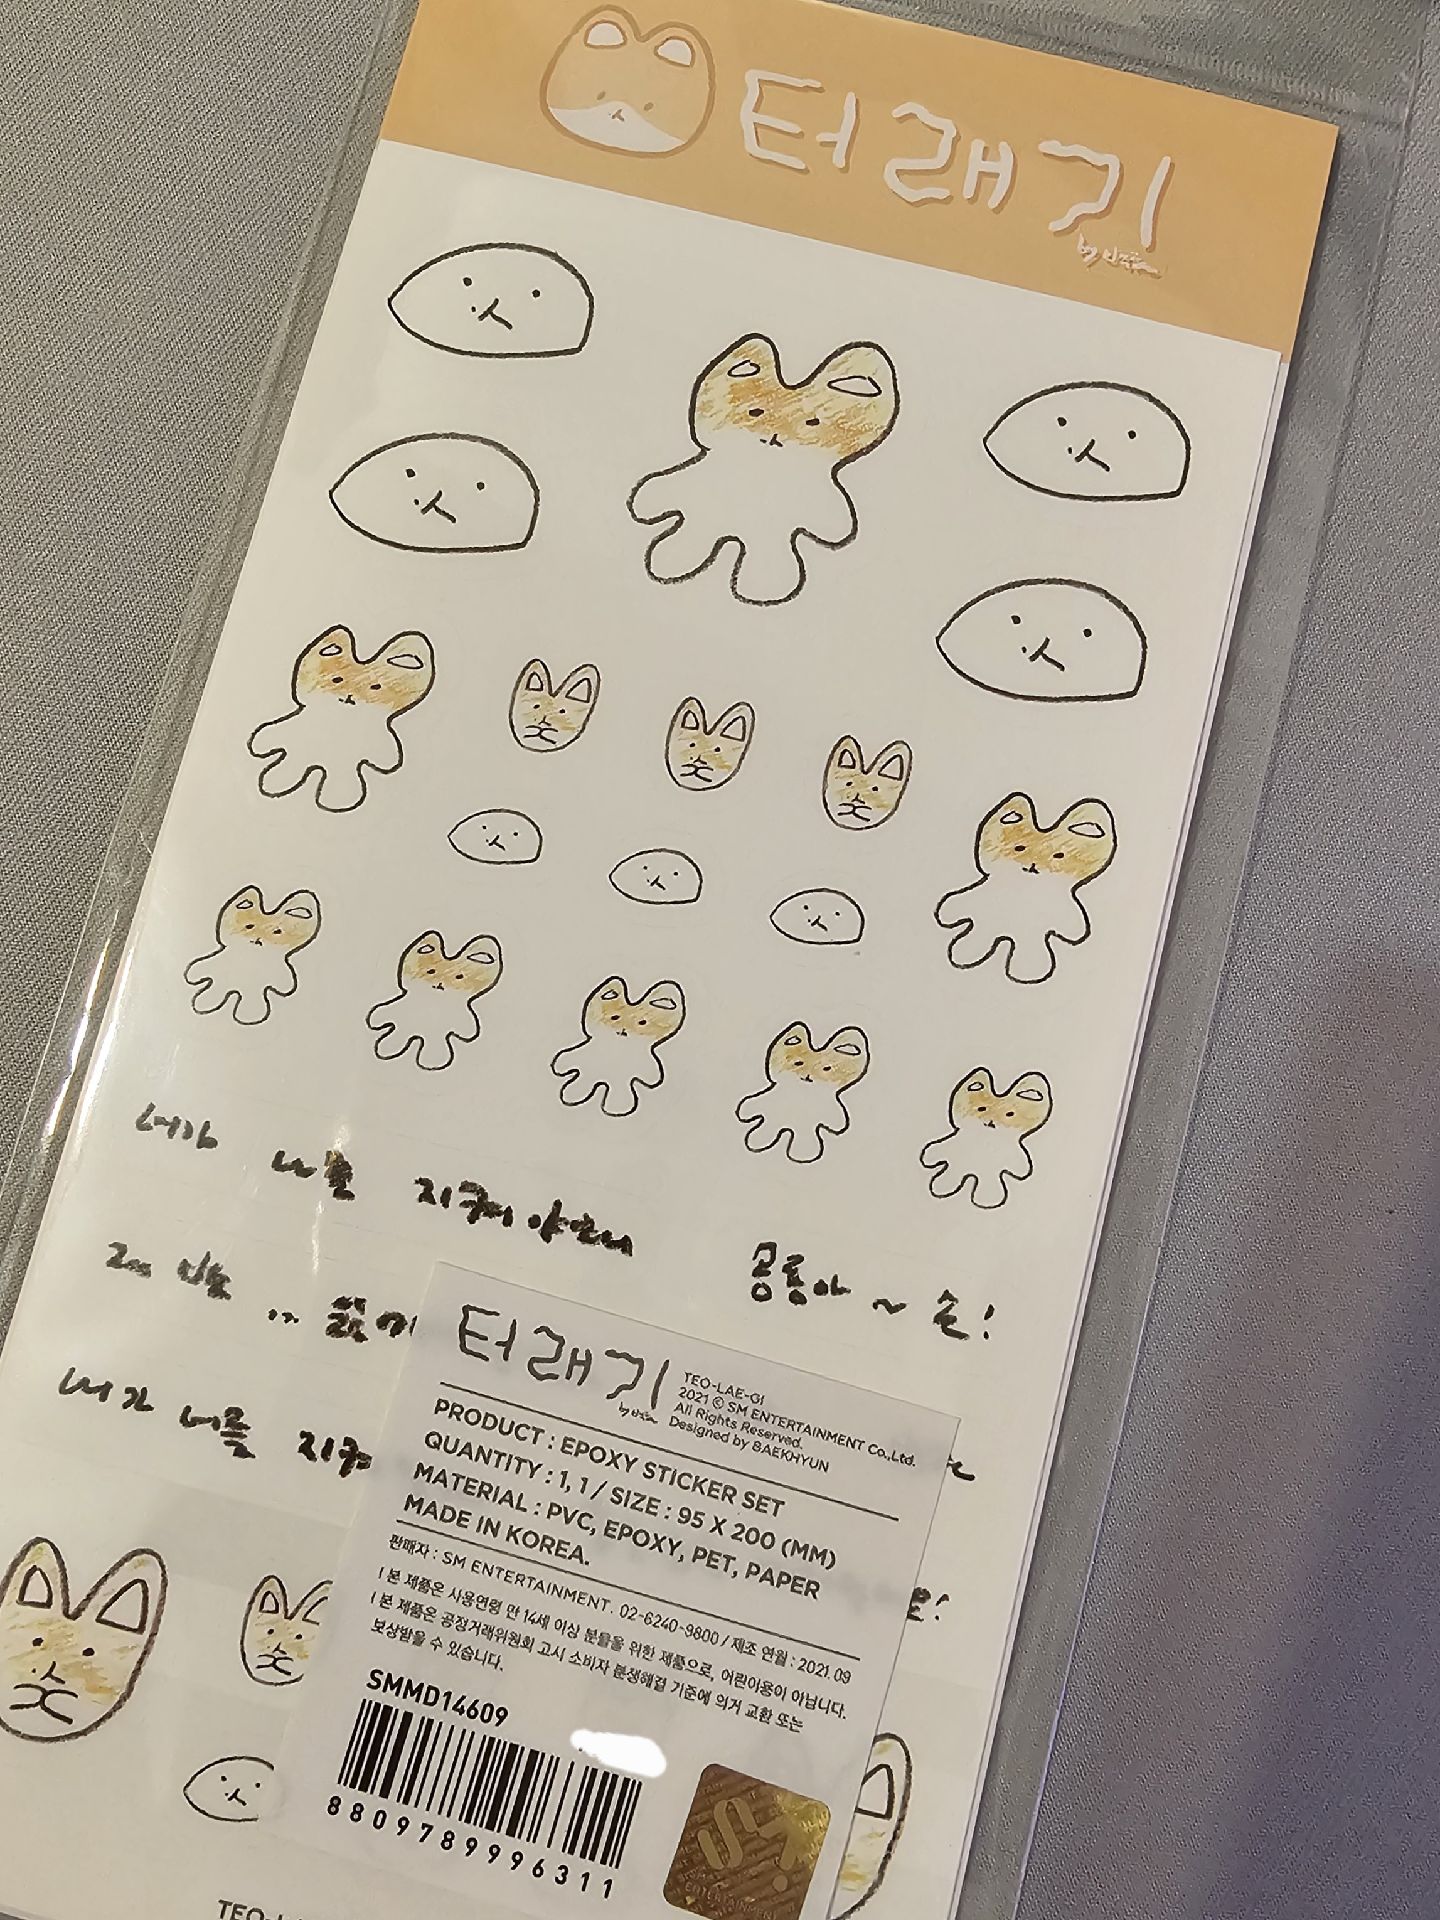 터래기
너가 나를 지켜야쥐
공룡아 ~ 손!
터래기
TEO-LAE-GI
2021 © SM ENTERTAINMENT Co.,Ltd.
All Rights Reserved.
Designed by BAEKHYUN
PRODUCT : EPOXY STICKER SET
QUANTITY : 1, 1 / SIZE : 95 X 200 (MM)
MATERIAL : PVC, EPOXY, PET, PAPER
MADE IN KOREA.
판매자 : SM ENTERTAINMENT. 02-6240-9800 / 제조 연월 : 2021. 09
! 본 제품은 사용연령 만 14세 이상 분들을 위한 제품으로, 어린이용이 아닙니다.
! 본 제품은 공정거래위원회 고시 소비자 분쟁해결 기준에 의거 교환 또는
보상받을 수 있습니다.
SMMD14609
8809789996311
ENTERTAINMENT